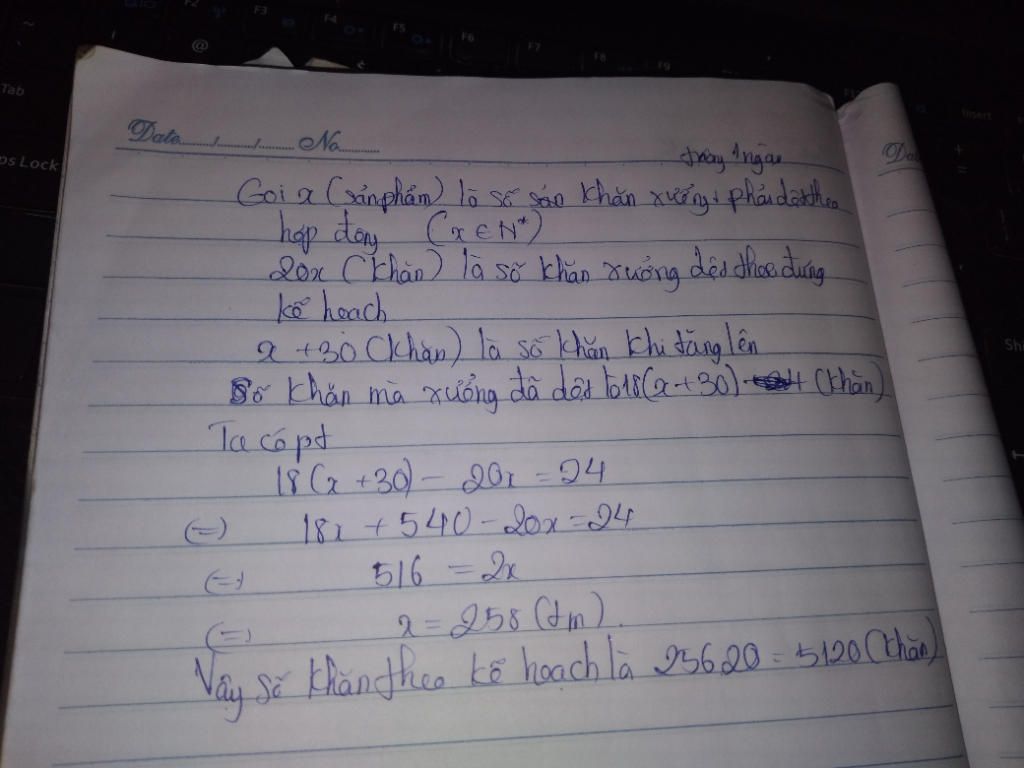 Tab
ps Lock
@
F2
F3
F4
F5
F6
F7
F8
F9
Insert
Date....../....../...... No..........
trong 1 ngày
Gọi x (sản phẩm) là số khăn xưởng phải dệt theo
hợp đồng (x ∈ N*)
20x (khăn) là số khăn xưởng dệt theo đúng
kế hoạch
x + 30 (khăn) là số khăn khi tăng lên
Số khăn mà xưởng đã dệt là 18(x+30) (khăn)
Ta có pt
18(x + 30) - 20x = 24
(=) 18x + 540 - 20x = 24
(=) 516 = 2x
(=) x = 258 (tm).
Vậy số khăn theo kế hoạch là 256 20 = 5120 (khăn)